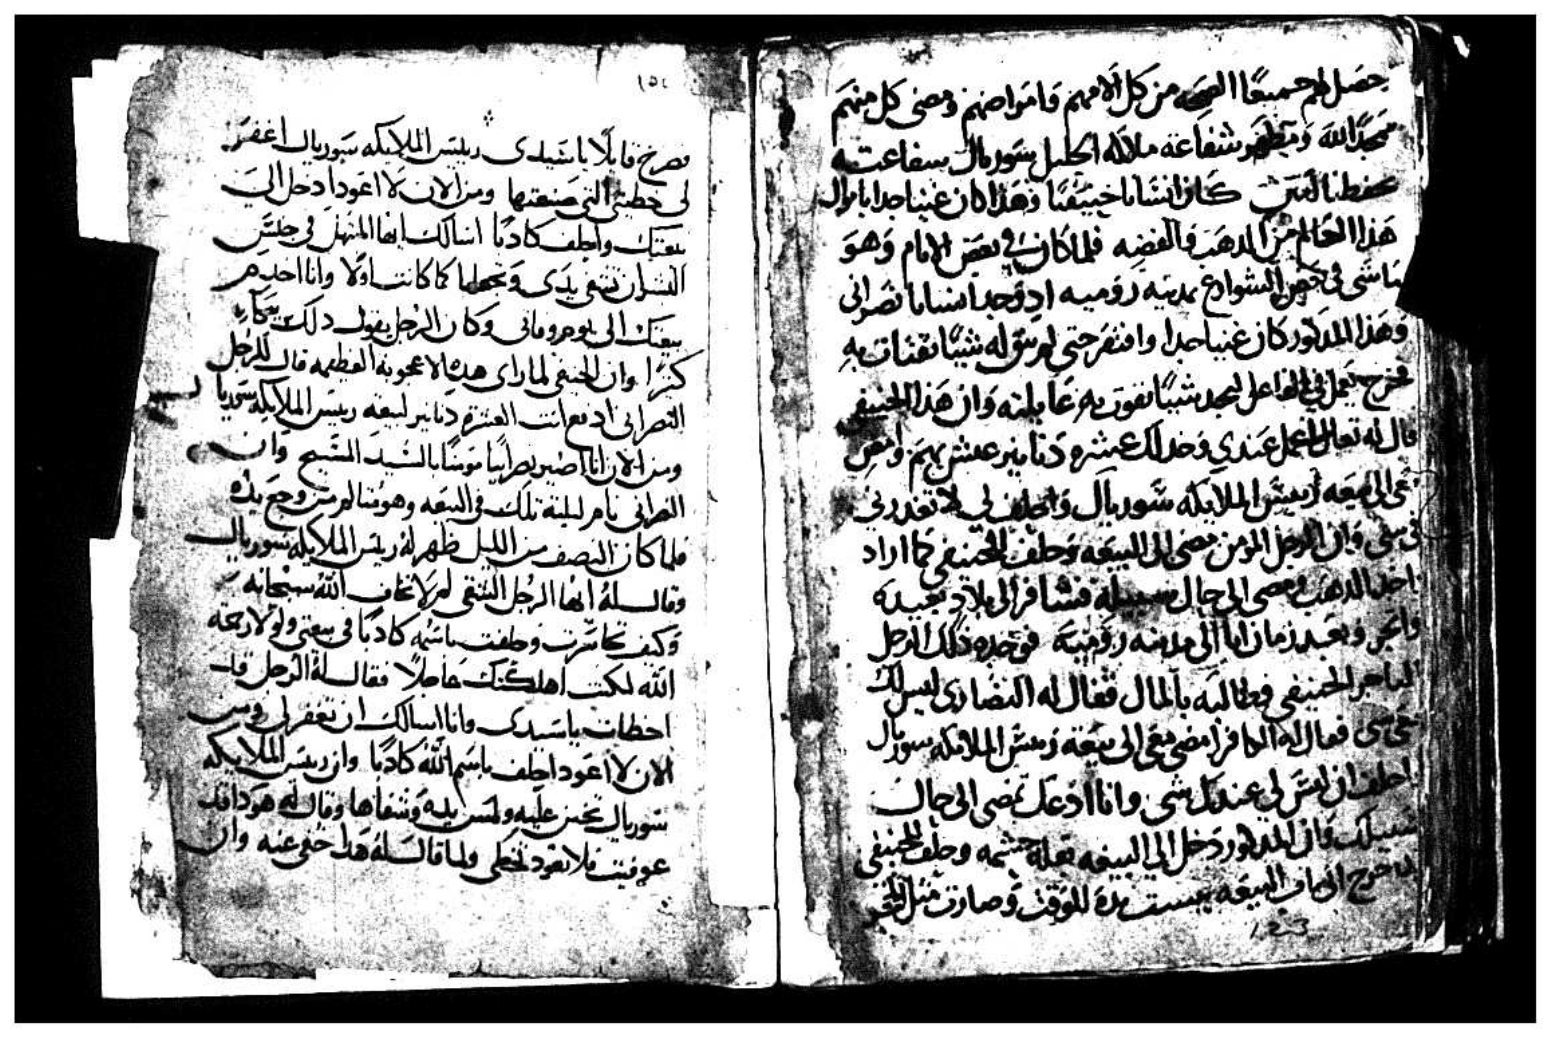 حصل لهم جميعًا الصحه من كل الامهم وامراضهم ومضى كل منهم
ممجدًا الله ومظهر شفاعة ملاك الجليل سوريال بشفاعته
يحفظنا امين كان انسانا حنيفيًا وهذا كان غنيا جدا باموال
هذا العالم من الدهب والفضه فلما كان في بعض الايام وهو
ماشى في بعض الشوارع بمدينه روميه اد وجد انسانا نصرانى
وهذا المدكور كان غنيا جدا وافتقر حتى لم يبق له شيًا يقتات به
فخرج يعمل في الفاعل ليجد شيًا يقوت به عايلته وان هذا الحنيفي
قال له تعال اعمل عندي وخد لك عشره دنانير عيش بهم وامض
معى الى بيعه رييس الملايكه سوريال واحلف لي لا تغدرني
في شى وان الرجل المومن مضى الى البيعه وحلف للحنيفي كما اراد
واخد الدهب ومضى الى حال سبيله فسافر الى بلاد بعيده
واتجر وبعد زمان اتا الى مدينه روميه فوجده دلك الرجل
التاجر الحنيفي فطالبه بالمال فقال له النصرانى ليس لك
معى شى فقال له الكافر امضى معى الى بيعة رييس الملايكه سوريال
احلف ان ليس لي عندك شى وانا ادعك تمضى الى حال
سبيلك وان المدكور دخل الى البيعه بقلة حشمه وحلف للحنيفي
فلما خرج الى باب البيعه يبست يده للوقت وصارت مثل الحجر
١٥٤
فصرخ قايلًا يا سيدى رييس الملايكه سوريال اغفر
لى خطيتى التى صنعتها ومن الان لا اعود ادخل الى
بيعتك واحلف كادبًا اسالك ايها المنهل في جنس
البشر ان تشفى يدى وتجعلها كما كانت اولا وانا اخدم
بيعتك الى يوم وفاتى وكان الرجل يقول دلك ببكاء
كثيرًا وان الحنيفي لما راى هده الاعجوبه العظيمه قال للرجل
النصرانى ادفع انت العشره دنانير لبيعه رييس الملايكه سوريال
ومن الان انا اصير نصرانيًا مومنًا بالسيد المسيح وان
النصرانى نام ليلته تلك في البيعه وهو متالم من وجع يده
فلما كان النصف من الليل ظهر له رييس الملايكه سوريال
وقال له ايها الرجل الشقى لم لا تخاف الله سبحانه
وكيف تجاسرت وحلفت باسمه كادبًا في بيعتى ولولا رحمة
الله لكنت اهلكتك عاجلًا فقال له الرجل قد
اخطات يا سيدى وانا اسالك ان تغفر لى ومن
الان لا اعود احلف باسم الله كادبًا وان رييس الملايكه
سوريال تحنن عليه ولمس يده وشفاها وقال له هودا قد
عوفيت فلا تعود تخطى ولما قال له هدا خفى عنه وان